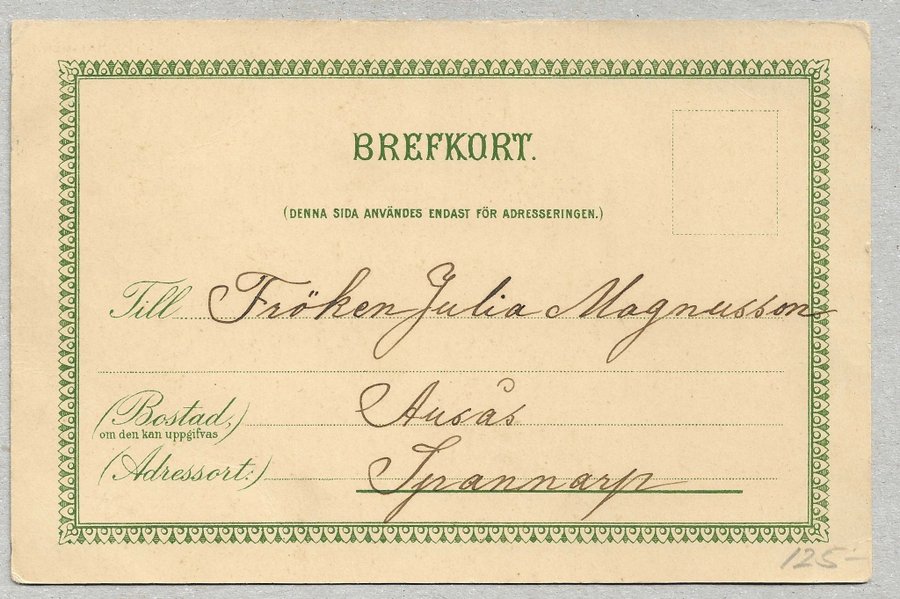 BREFKORT.
(DENNA SIDA ANVÄNDES ENDAST FÖR ADRESSERINGEN.)
Till Fröken Julia Magnusson
(Bostad,) Ausås
om den kan uppgifvas
(Adressort:) Spannarp
125-